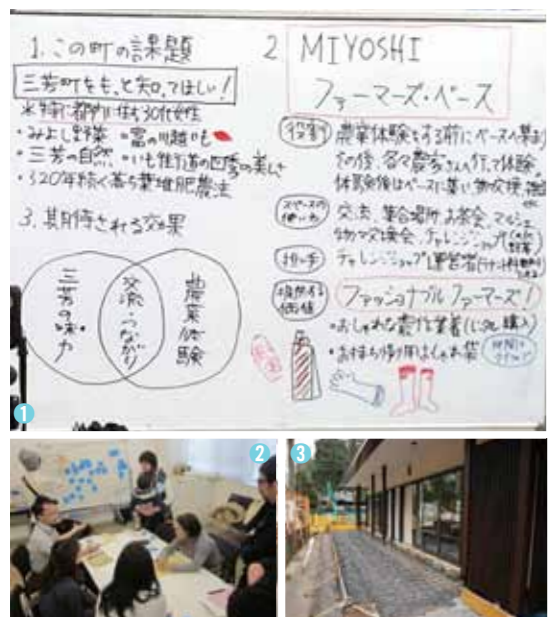 1. この町の課題
三芳町をもっと知ってほしい!
*特に都内に住む30代女性
・みよし野菜 ・富の川越いも
・三芳の自然 ・いも街道の四季の美しさ
・320年続く落ち葉堆肥農法
3. 期待される効果
三芳の魅力
交流・つながり
農業体験
2 MIYOSHI
ファーマーズ・ベース
役割 農業体験をする前にベースへ集まり
その後、各々農家さんへ行って体験。
体験後はベースに集い物々交換、
スペースの使い方 交流、集合場所、お茶会、マルシェ
物々交換会、チャレンジショップ
担い手 チャレンジショップ運営者
提供する価値 ファッショナブルファーマーズ!
・おしゃれな農作業着
・お持ち帰り用おしゃれ袋
1
2
3